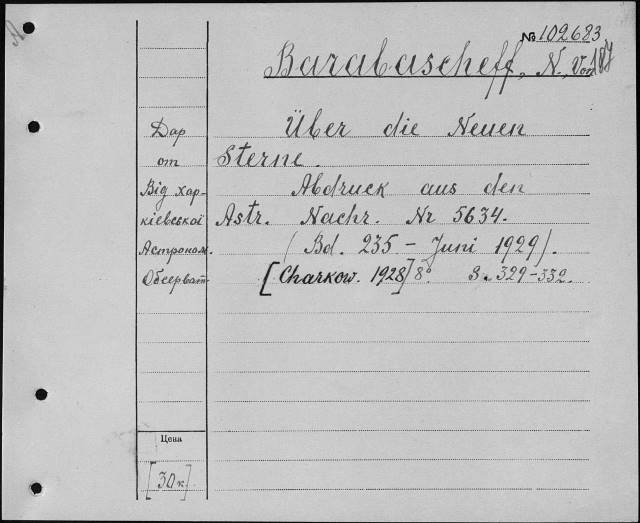 № 102683
Barabascheff, N.,
Дар
от
Від хар-
ківської
Астроном.
Обсерват
Über die Neuen
Sterne.
Abdruck aus den
Astr. Nachr. Nr 5634.
(Bd. 235 – Juni 1929).
[Charkow. 1928] 8° S. 329-332.
Цена
[30к]